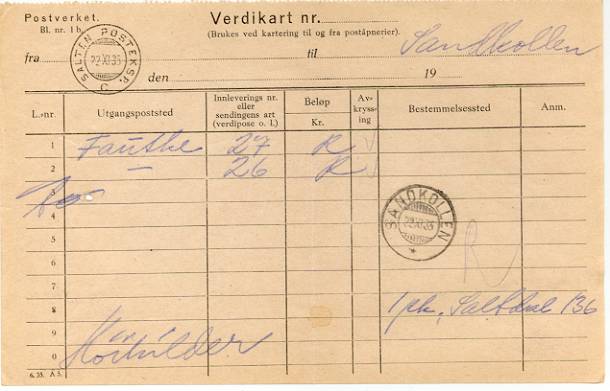 Postverket. Verdikart nr.
Bl. nr. 1 b. (Brukes ved kartering til og fra poståpnerier).
fra SALTEN POSTEKSP. 22 XI 35 C til Sandkollen
den 19
L.-nr. Utgangspoststed Innleverings nr. eller sendingens art (verdipose o. l.) Beløp Kr. Av-kryss-ing Bestemmelsessted Anm.
1 Fauske 27 R
2 — 26 R
3
4 SANDKOLLEN 22 XI 35
5
6 R
7
8 1 pk. Saltdal 136
9
0
6. 35. A 5.